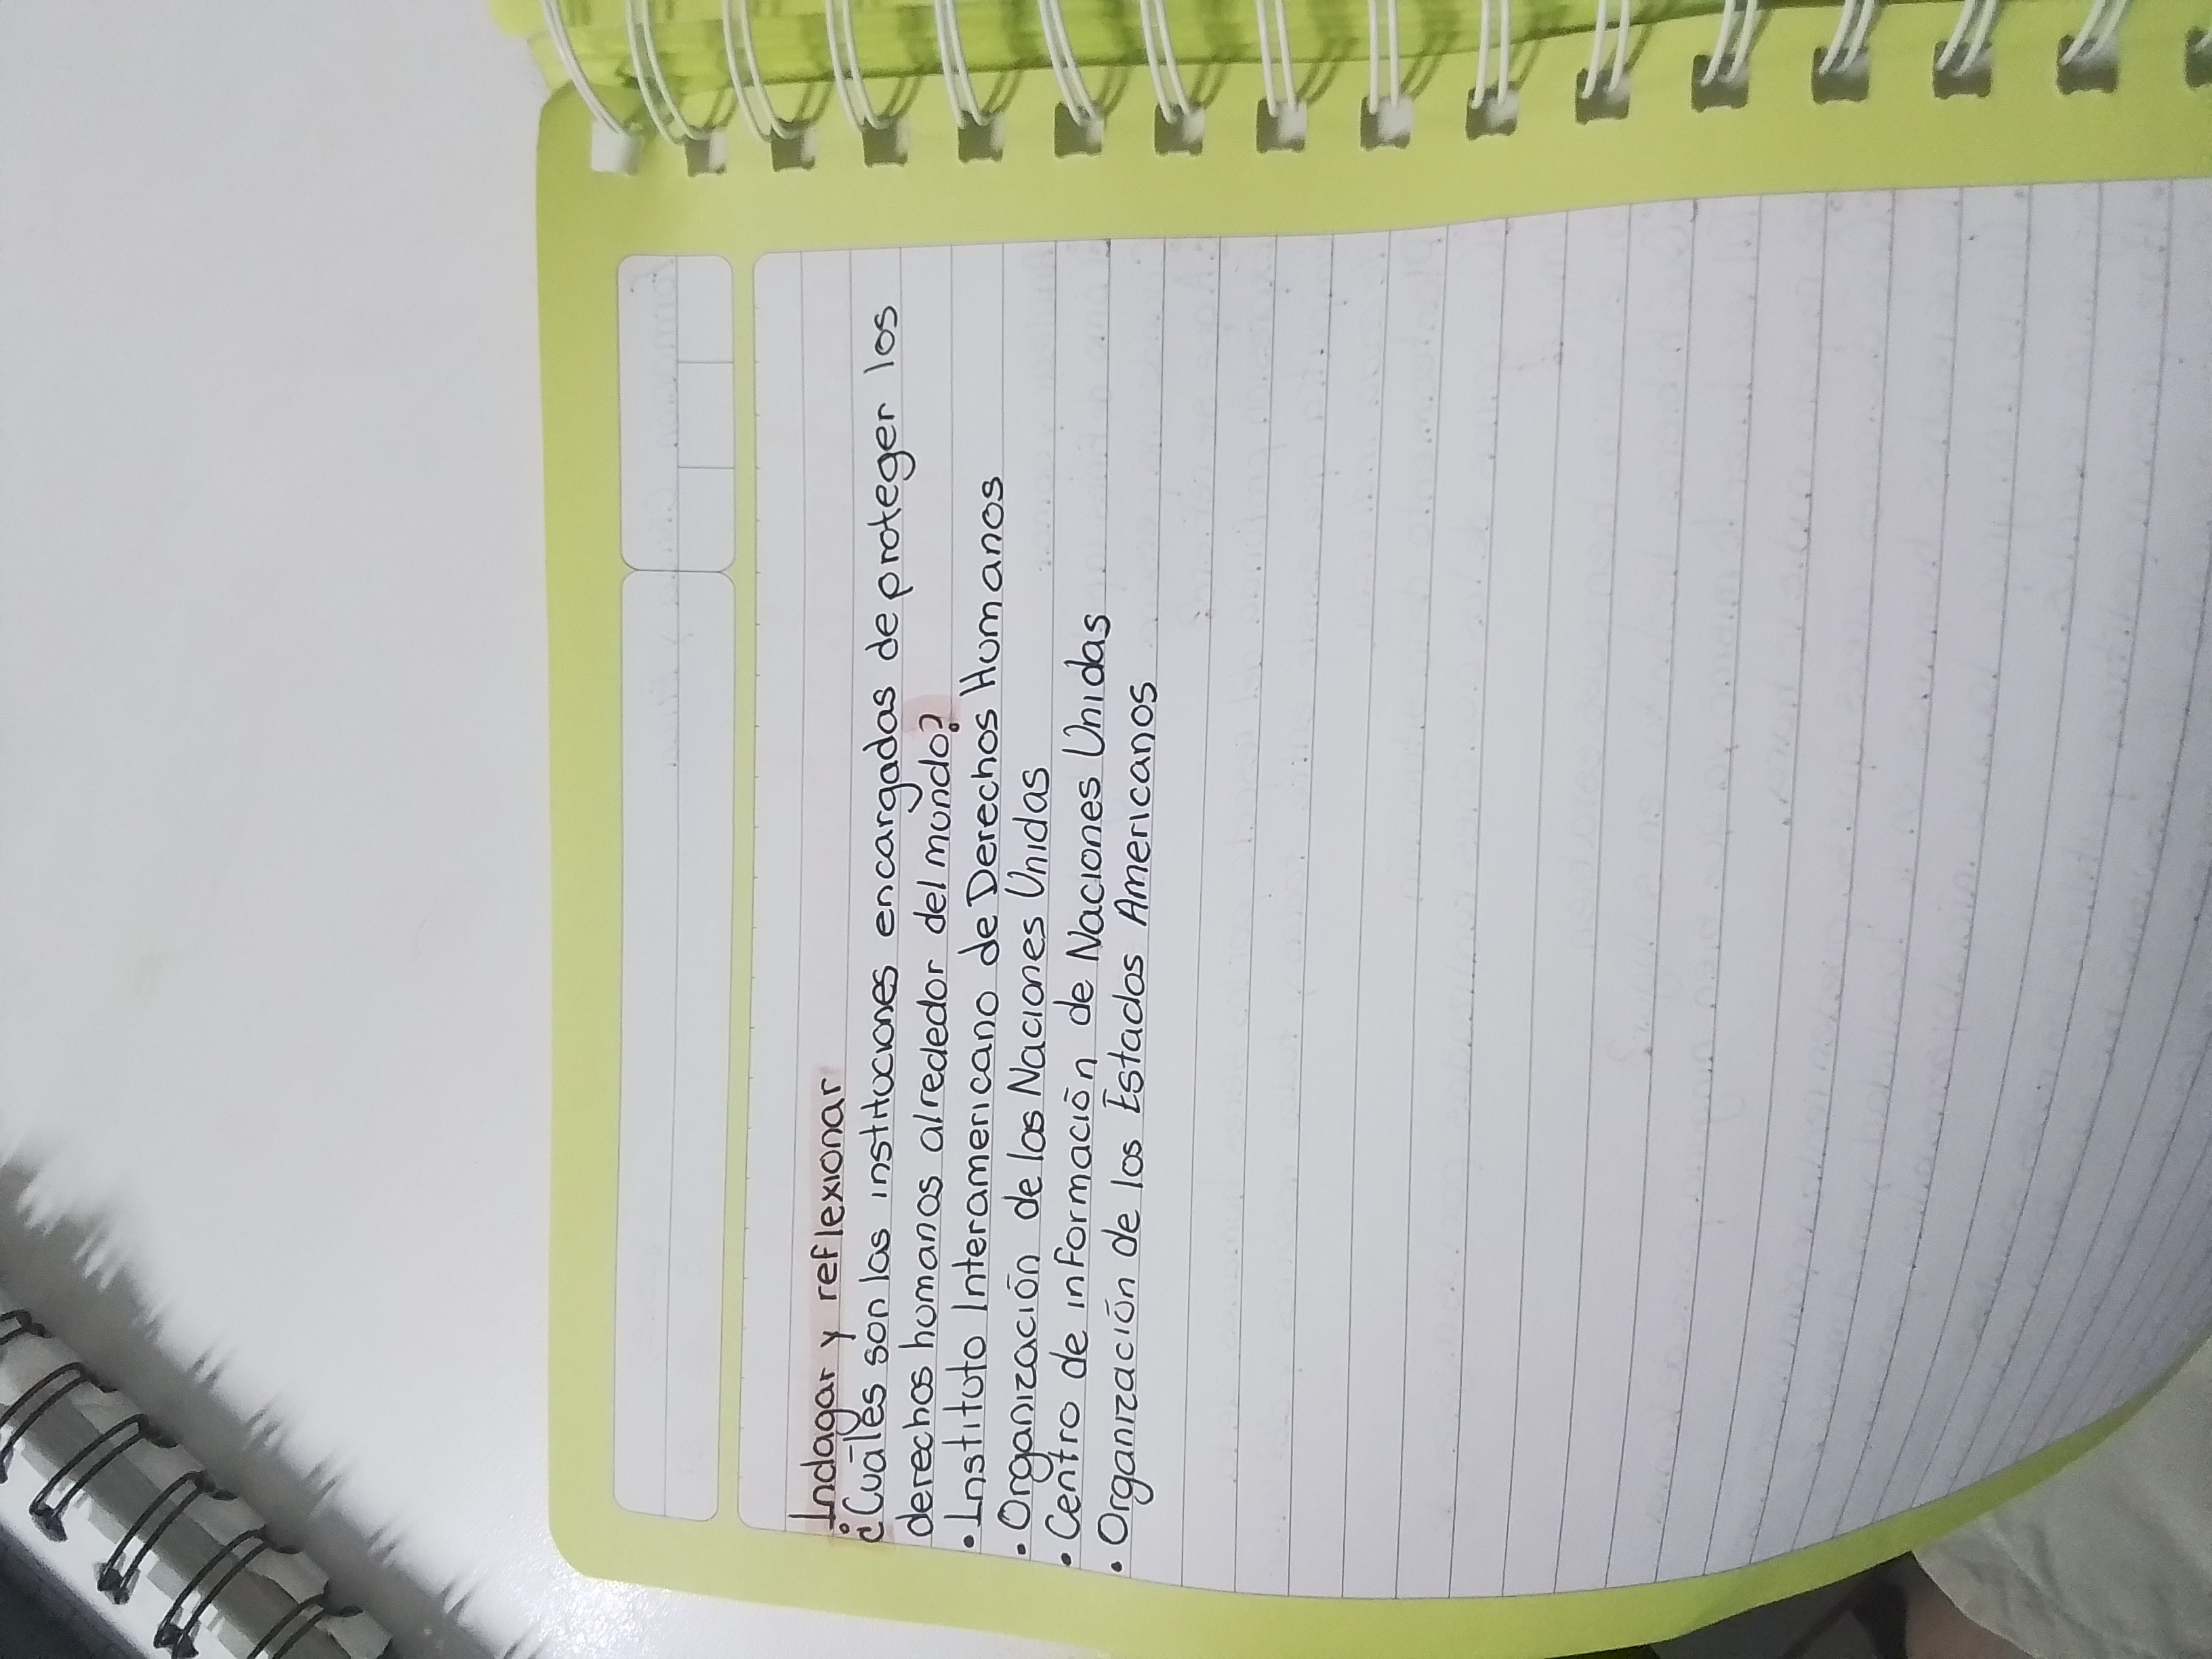 Indagar y reflexionar
¿Cuáles son las instituciones encargadas de proteger los
derechos humanos alrededor del mundo?
• Instituto Interamericano de Derechos Humanos
• Organización de las Naciones Unidas
• Centro de información de Naciones Unidas
• Organización de los Estados Americanos